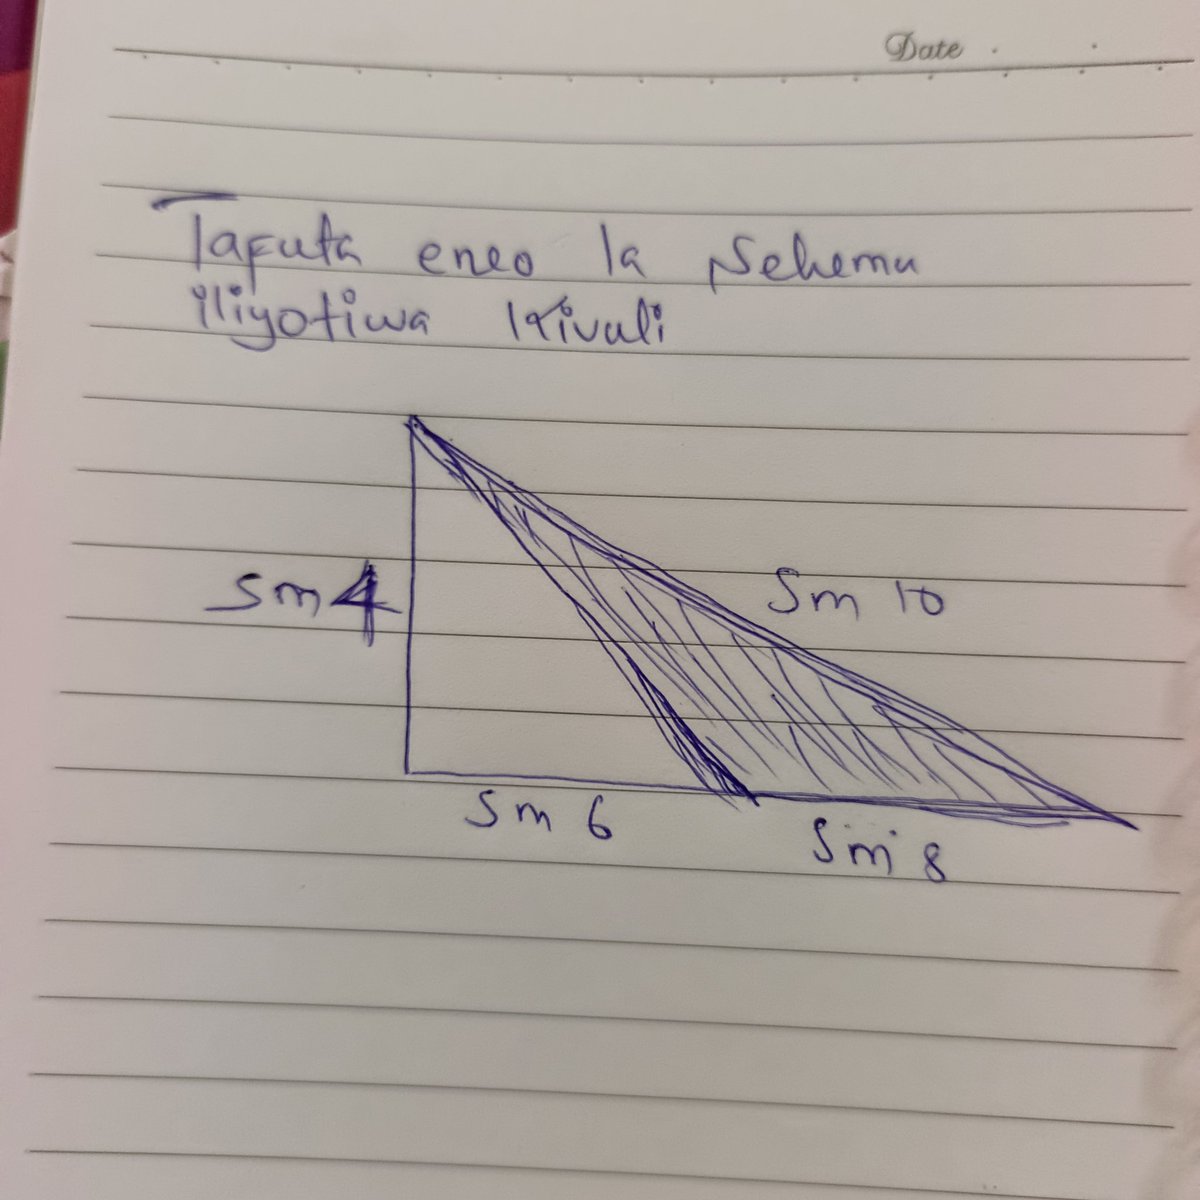 Date
Tafuta eneo la Sehemu
iliyotiwa Kivuli
Sm 4
Sm 10
Sm 6
Sm 8